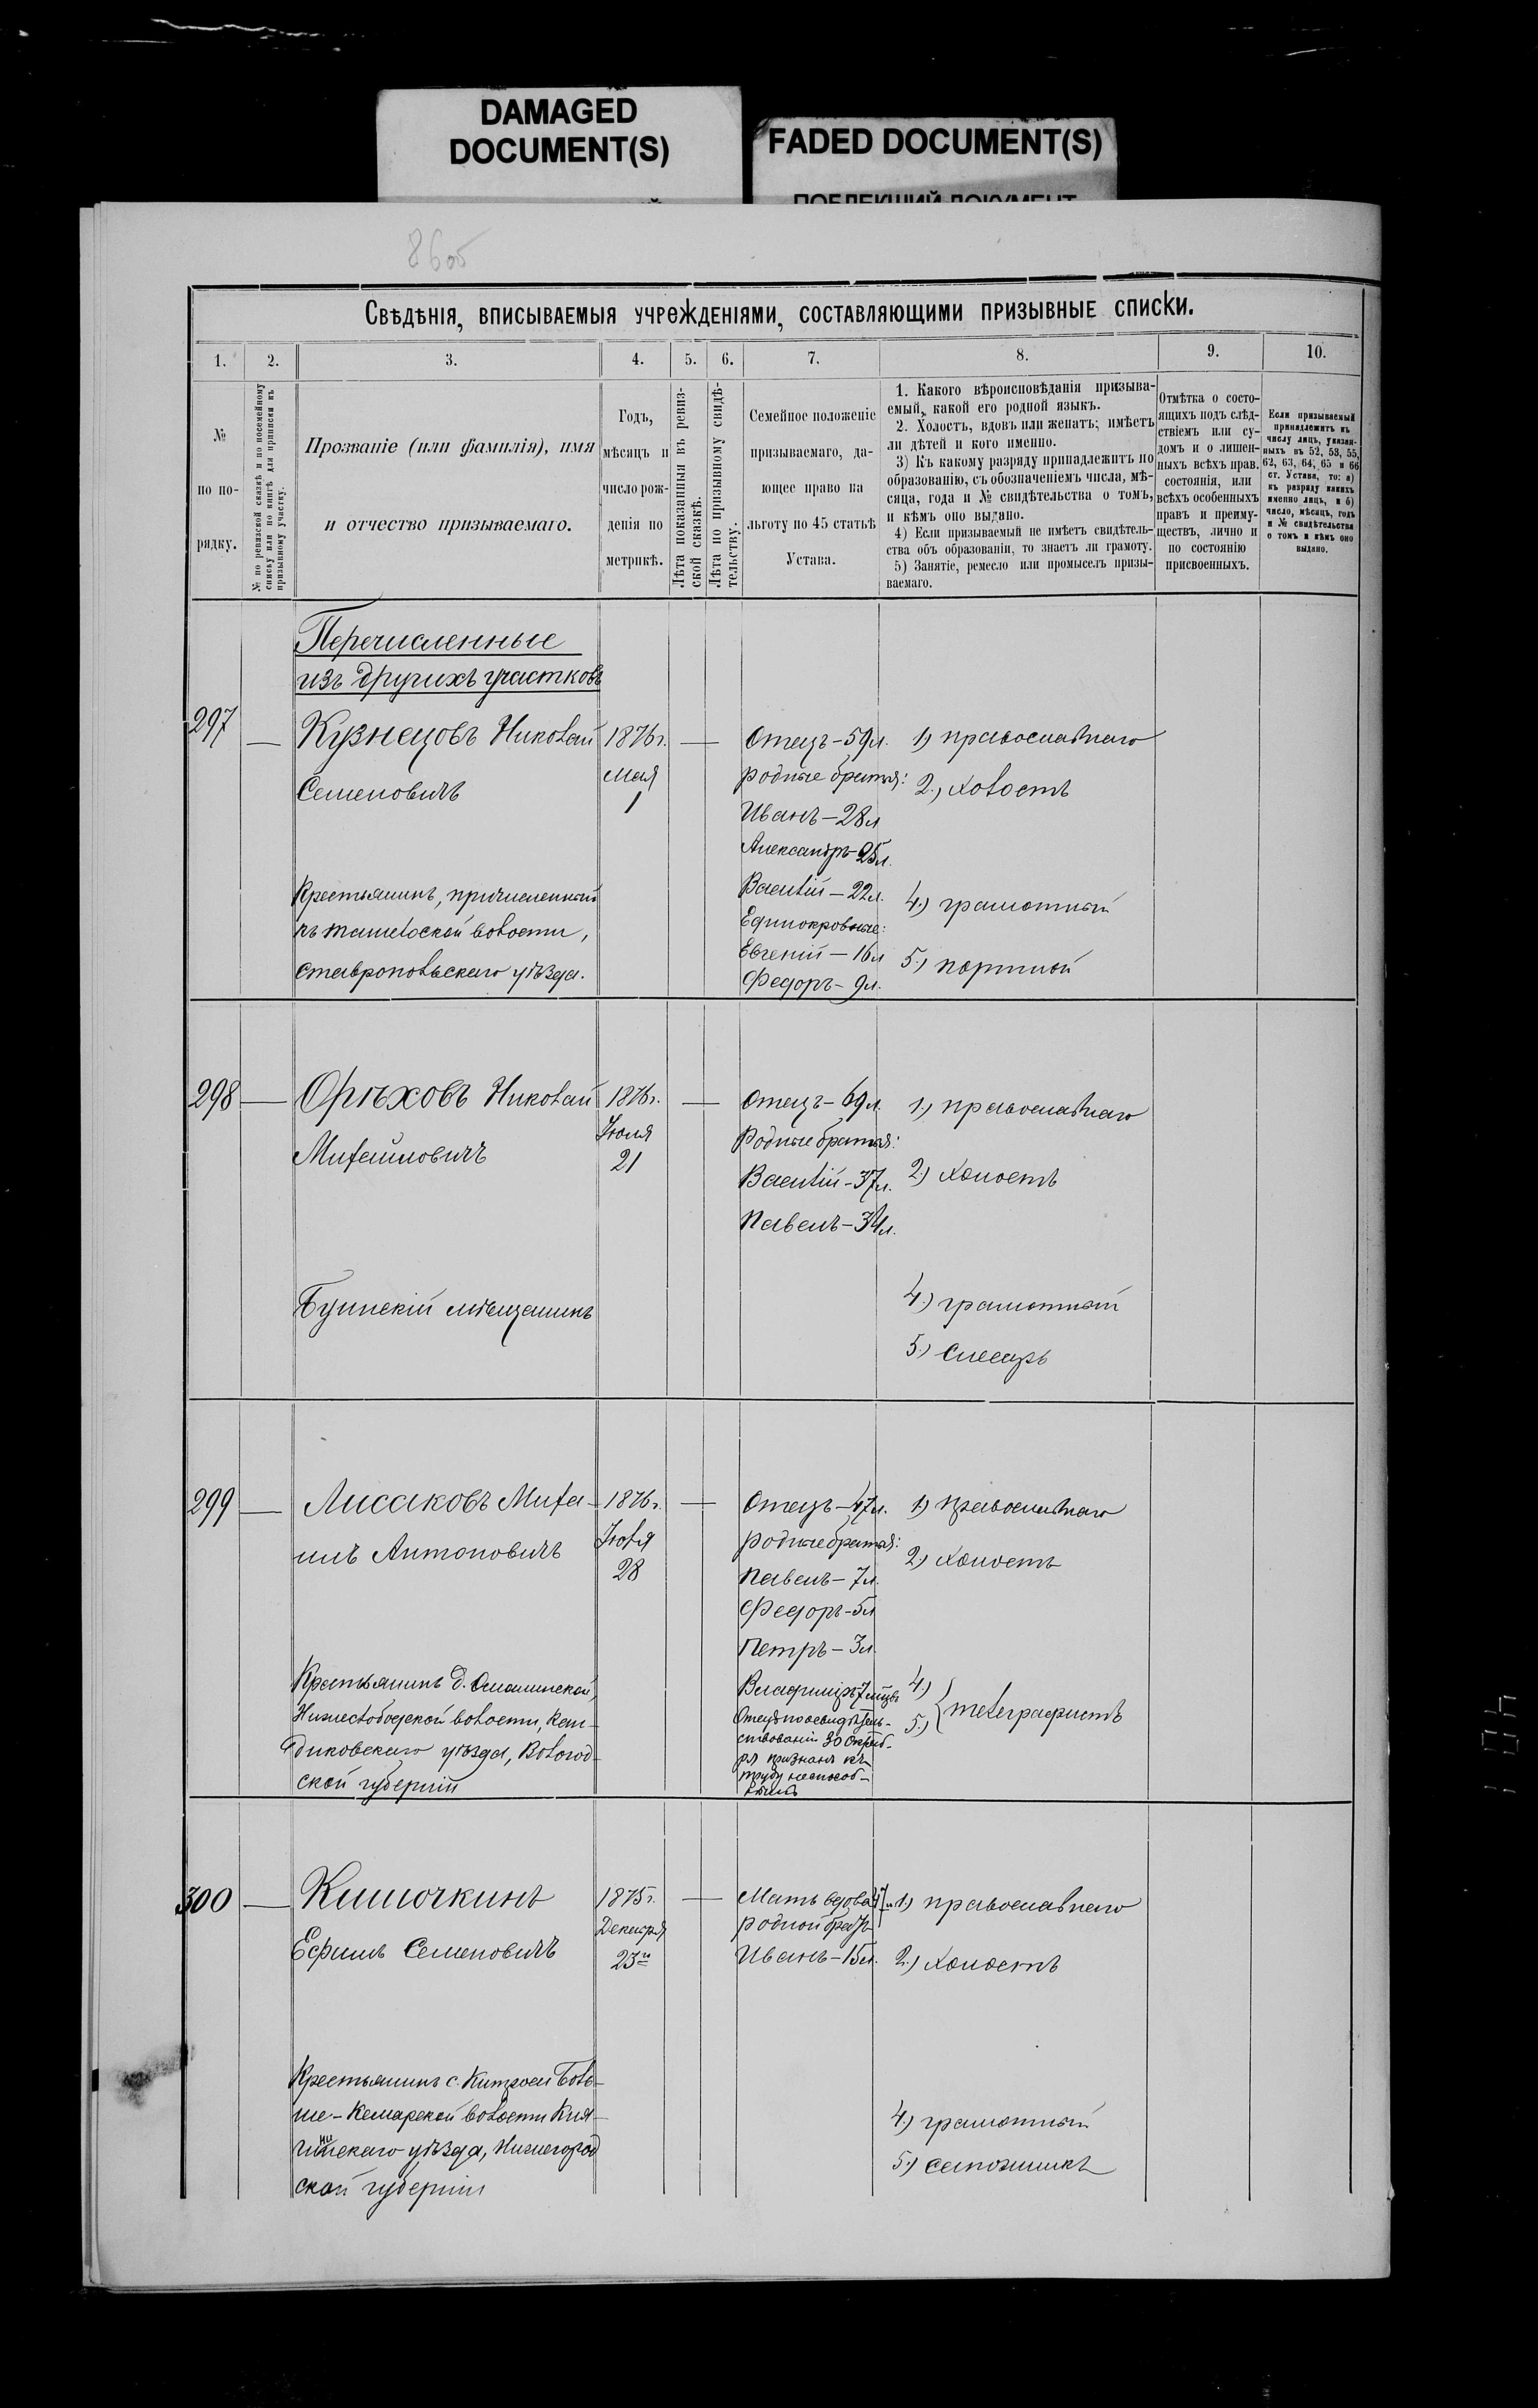 DAMAGED
DOCUMENT(S)
FADED DOCUMENT(S)
ПОБЛЕКШИЙ ДОКУМЕНТ
86об
Свѣдѣнія, вписываемыя учрежденіями, составляющими призывные списки.
1. 2. 3. 4. 5. 6. 7. 8. 9. 10.
№
по по-
рядку.
№ по ревизской сказкѣ и по посемейному
списку или по книгѣ для приписки къ
призывному участку.
Прозваніе (или фамилія), имя
и отчество призываемаго.
Годъ,
мѣсяцъ и
число рож-
денія по
метрикѣ.
Лѣта показанныя въ ревиз-
ской сказкѣ.
Лѣта по призывному свидѣ-
тельству.
Семейное положеніе
призываемаго, да-
ющее право на
льготу по 45 статьѣ
Устава.
1. Какого вѣроисповѣданія призыва-
емый, какой его родной языкъ.
2. Холостъ, вдовъ или женатъ; имѣетъ
ли дѣтей и кого именно.
3) Къ какому разряду принадлежитъ по
образованію, съ обозначеніемъ числа, мѣ-
сяца, года и № свидѣтельства о томъ,
и кѣмъ оно выдано.
4) Если призываемый не имѣетъ свидѣтель-
ства объ образованіи, то знаетъ ли грамоту.
5) Занятіе, ремесло или промыселъ призы-
ваемаго.
Отмѣтка о состо-
ящихъ подъ слѣд-
ствіемъ или су-
домъ и о лишен-
ныхъ всѣхъ прав.
состоянія, или
всѣхъ особенныхъ
правъ и преиму-
ществъ, лично и
по состоянію
присвоенныхъ.
Если призываемый
принадлежитъ къ
числу лицъ, указан-
ныхъ въ 52, 53, 55,
62, 63, 64, 65 и 66
ст. Устава, то: а)
къ разряду какихъ
именно лицъ, и б)
число, мѣсяцъ, годъ
и № свидѣтельства
о томъ и кѣмъ оно
выдано.
Перечисленные
изъ другихъ участковъ
297 — Кузнецовъ Николай
Семеновичъ
Крестьянинъ, причисленный
къ
волости,
Ставропольскаго уѣзда.
1876г.
Мая
1
—
Отецъ – 59л.
родные братья:
Иванъ – 28л
Александръ – 25л.
Василій – 22л.
Единокровные:
Евгеній – 16л
Федоръ – 9л.
1) православнаго
2.) холостъ
4.) грамотный
5.) портной
298 — Орѣховъ Николай
Михайловичъ
Буинскій мѣщанинъ
1876г.
Іюля
21
—
Отецъ – 69л.
Родные братья:
Василій – 37л.
Павелъ – 34л.
1.) православнаго
2.) холостъ
4.) грамотный
5.) слесарь
299 — Лисаковъ Миха-
илъ Антоновичъ
Крестьянинъ д.
волости, Кад-
никовскаго уѣзда, Вологод-
ской губерніи
1876г.
Іюля
28
—
Отецъ – 47л.
родные братья:
Павелъ – 7л.
Федоръ – 5л
Петръ – 3л.
Владиміръ 7 мѣцв
Отецъ по освидѣтель-
ствованіи 30 Октяб-
ря признанъ къ
труду неспособ-
нымъ
1) православнаго
2.) холостъ
4.)
5.) { телеграфистъ
300 — Кишочкинъ
Ефимъ Семеновичъ
Крестьянинъ с.
Боль-
ше-Кемарской волости Кня-
гининскаго уѣзда, Нижегород
ской губерніи
1875г.
Декабря
23го
—
Мать вдова и
родной братъ
Иванъ – 15л.
1) православнаго
2.) холостъ
4.) грамотный
5.) сапожникъ